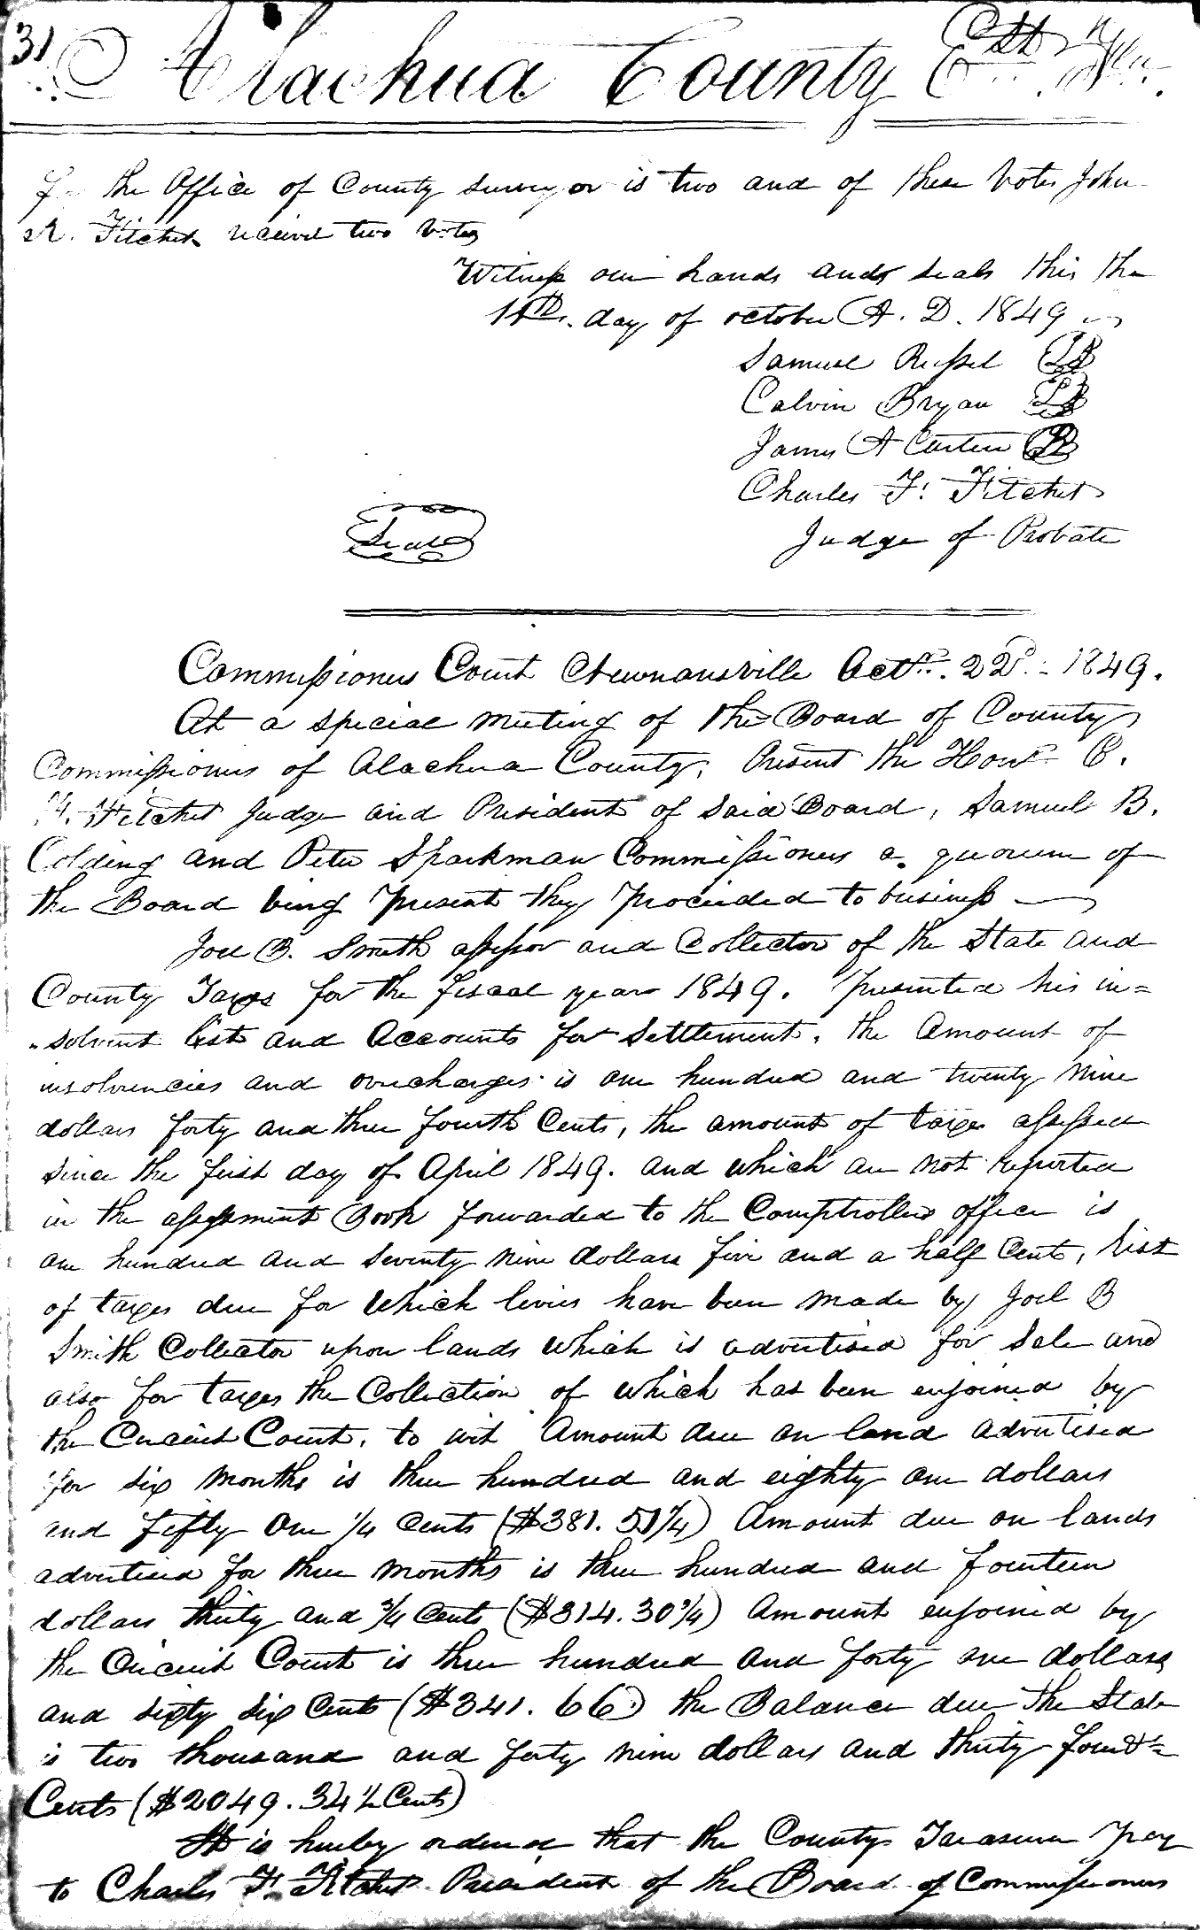 31 Alachua County
the Office of County surveyor is two and of these Votes John
R. Fitchet received two Votes
Witness our hands and seals this the
day of october A. D. 1849
Samuel Russel LS
Calvin Bryan LS
James A Carter LS
Charles F. Fitchet
Seal
Judge of Probate
Commissioners Court Newnansville Octr. 22d. 1849.
At a special meeting of the Board of County
Commissioners of Alachua County, Present the Honl. C.
F. Fitchet Judge and President of said Board, Samuel B.
Colding and Peter Sparkman Commissioners a quorum of
the Board being present they proceeded to business
Joel B. Smith assessor and Collector of the State and
County Taxes for the fiscal year 1849. presented his in=
solvent list and Accounts for Settlement. the Amount of
insolvencies and overcharges is one hundred and twenty nine
dollars forty and three fourth Cents, the amount of taxes assessed
since the first day of April 1849. and which are not reported
in the assessment Book forwarded to the Comptrollers office is
one hundred and seventy nine dollars five and a half Cents, List
of taxes due for which levies have been made by Joel B
Smith Collector upon lands which is advertised for Sale and
also for taxes the Collection of which has been enjoined by
the Circuit Court. to wit Amount due on land advertised
for six months is three hundred and eighty one dollars
and fifty One 1/4 Cents ($381. 51 1/4) Amount due on lands
advertised for three months is three hundred and fourteen
dollars thirty and 3/4 Cents ($314. 30 3/4) Amount enjoined by
the Circuit Court is three hundred and forty one dollars
and sixty six Cents ($341. 66) the Balance due the State
is two thousand and forty nine dollars and thirty four
Cents ($2049. 34 1/2 Cents)
It is hereby ordered that the County Treasurer pay
to Charles F. Fitchet President of the Board of Commissioners